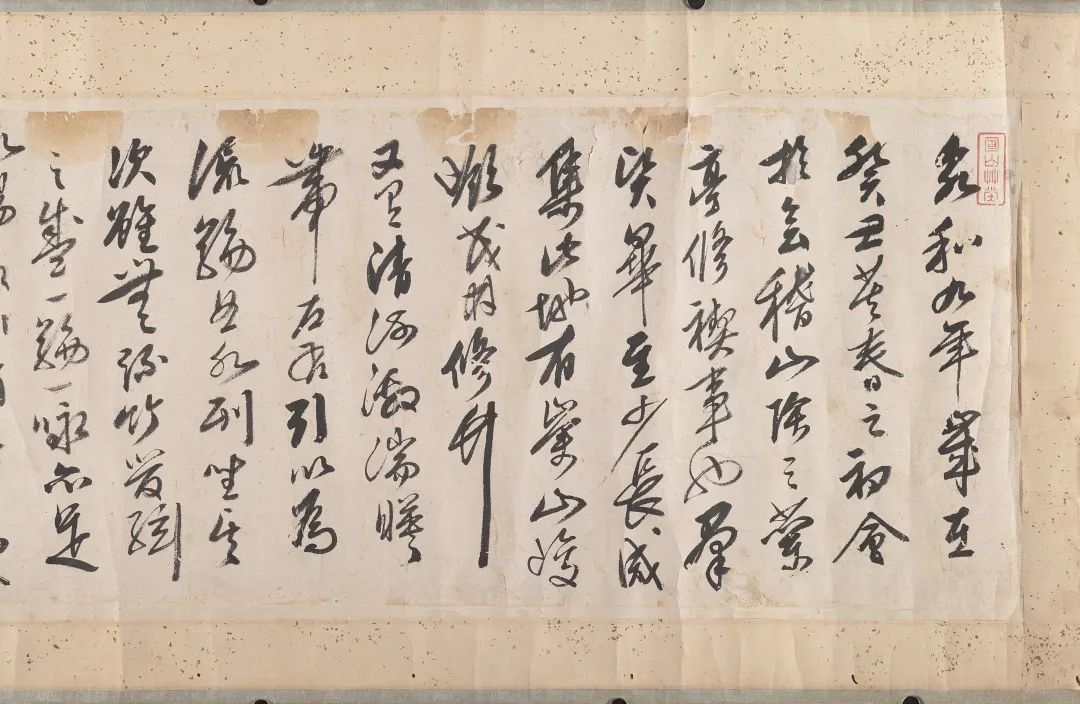 永和九年歲在
癸丑暮春之初會
於會稽山陰之蘭
亭修禊事也羣
賢畢至少長咸
集此地有崇山峻
嶺茂林修竹
又有清流激湍暎
帶左右引以為
流觴曲水列坐其
次雖無絲竹管絃
之盛一觴一詠亦足